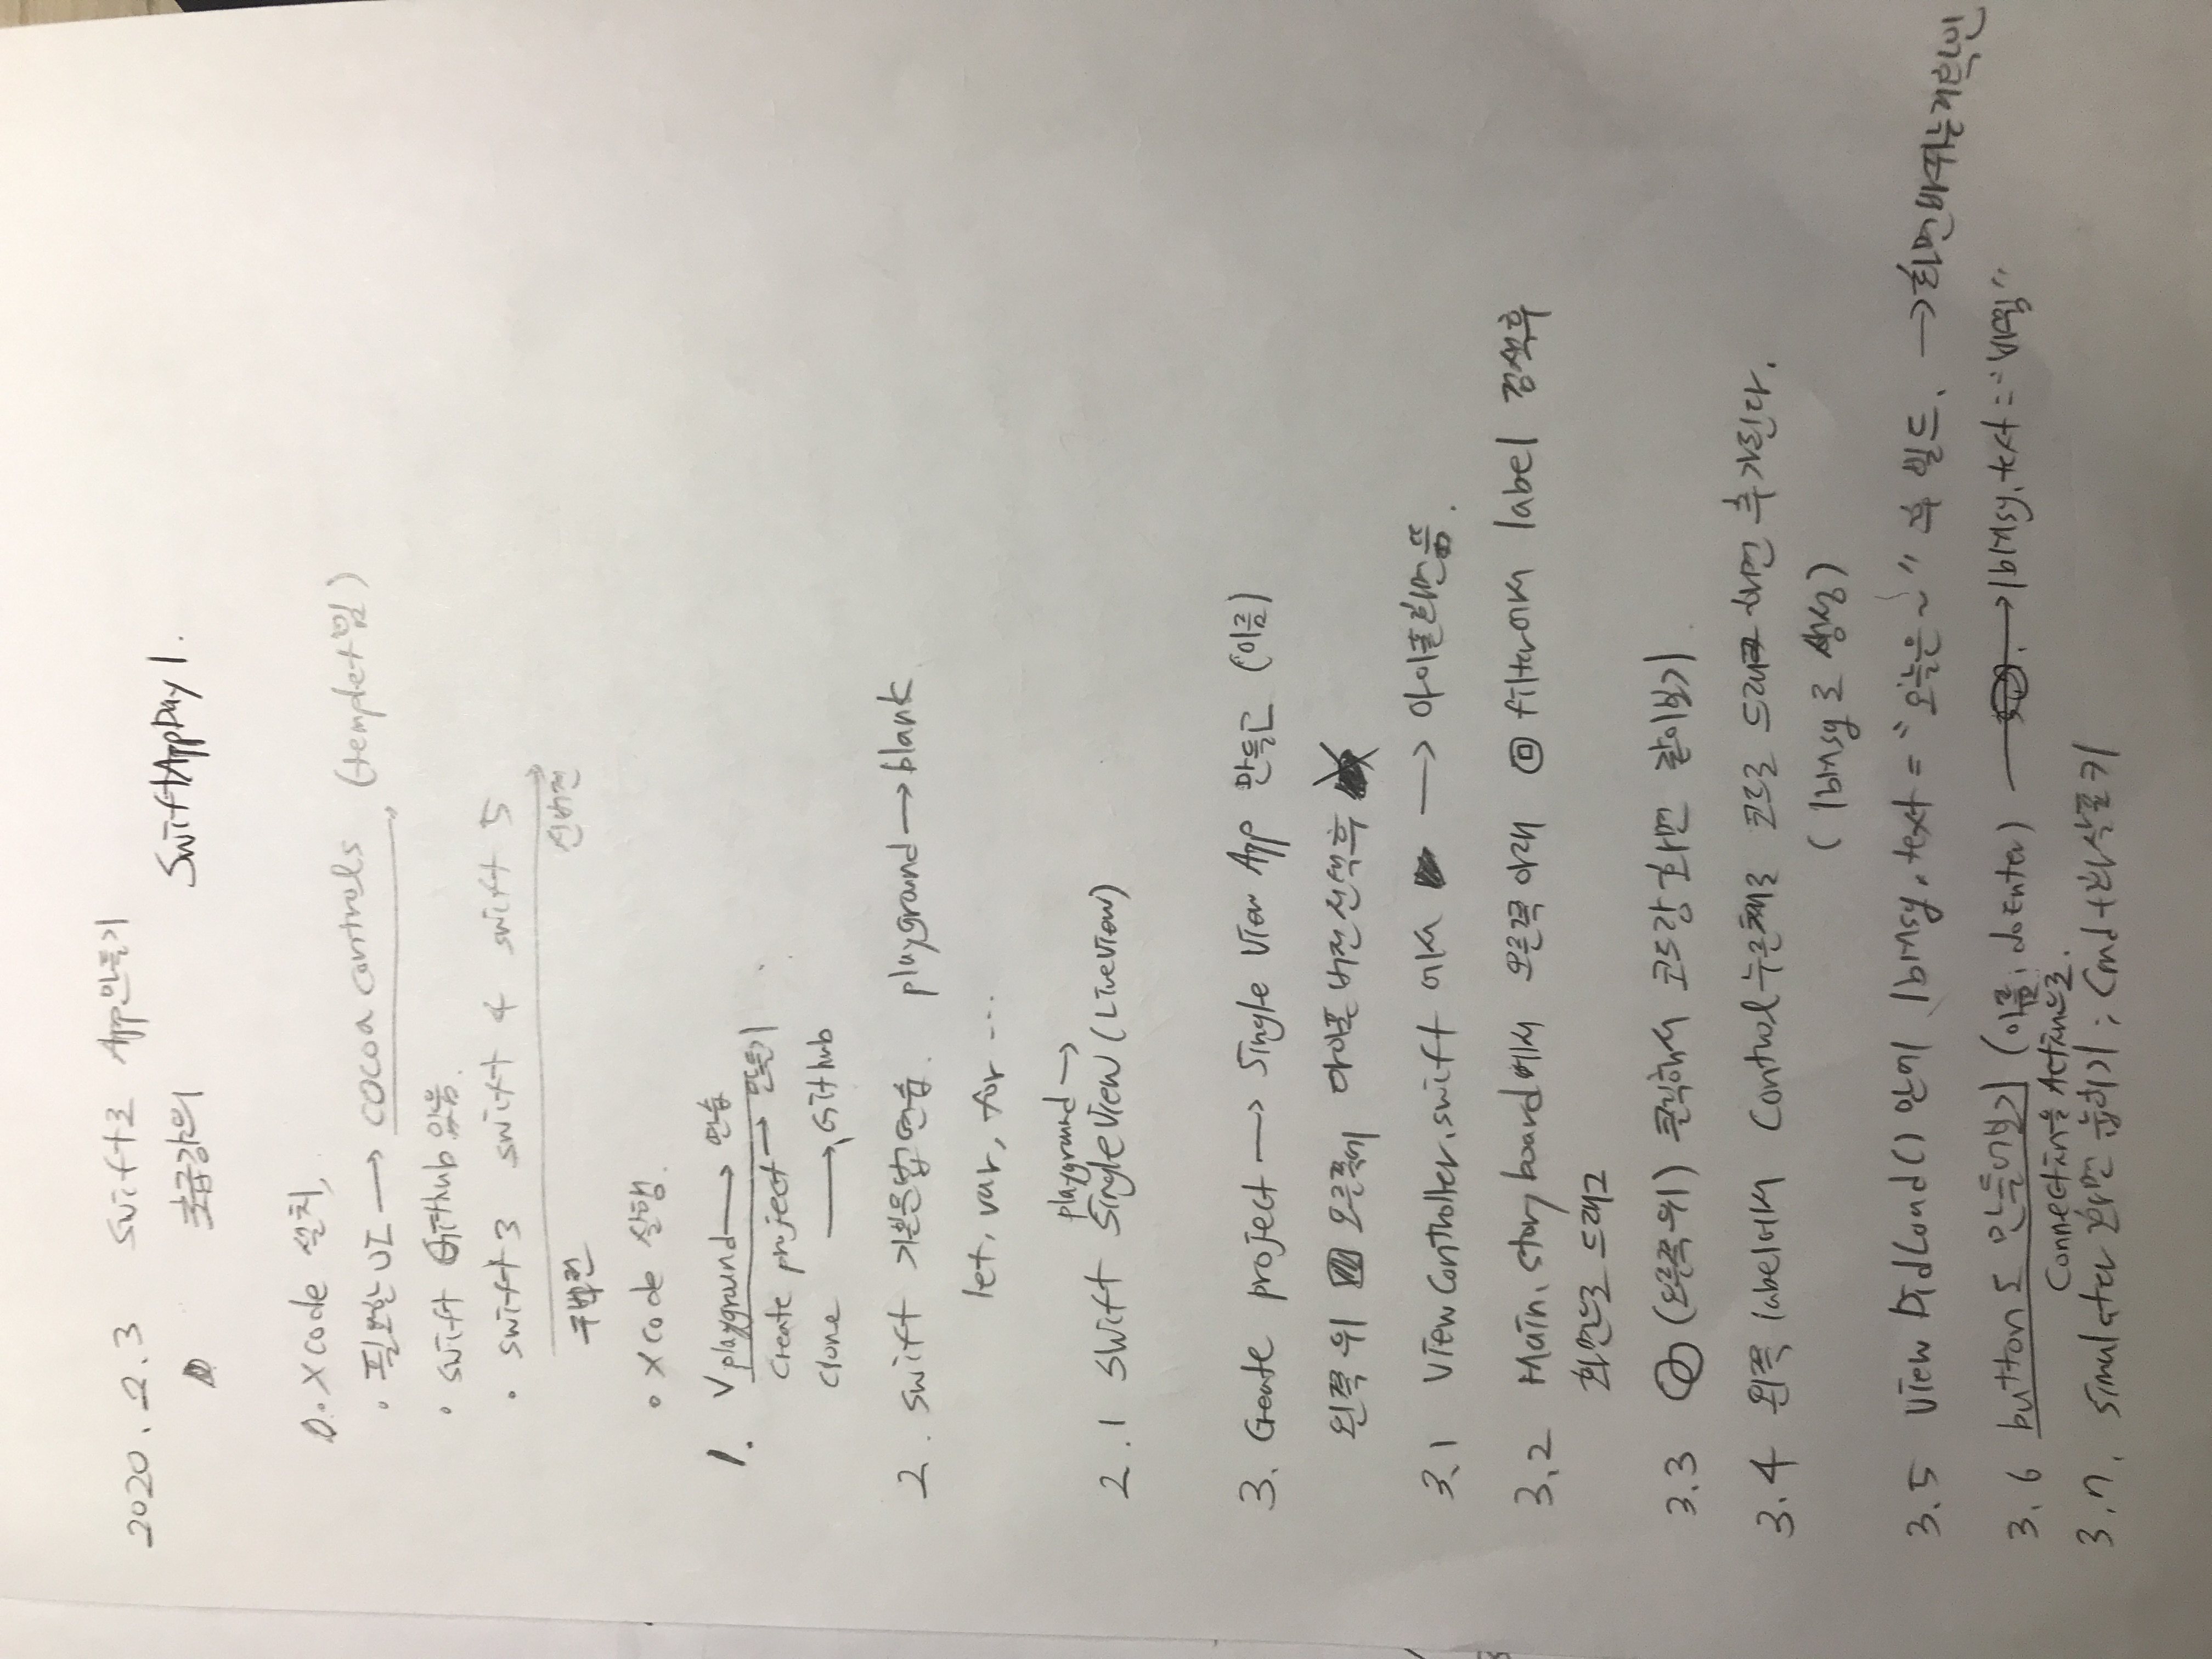 2020. 2. 3 Swift로 App만들기
초급강의 SwiftAppDay 1.
0. Xcode 설치,
• 필요한 UI → cocoa controls (templet임)
• swift Github 있음.
• swift 3 swift 4 swift 5
구버전 신버전
• Xcode 실행.
1. V playground → 연습
Create project → 만들기
Clone → Github
2. swift 기본문법연습. playground → blank
let, var, for ...
playground →
2.1 swift SingleView (LiveView)
3. Create project → Single View App 만들고 (이름)
왼쪽 위 오른쪽에 아이폰 버전 선택후
3.1 ViewController.swift 에서 → 아이폰화면뜸.
3.2 Main.storyboard에서 오른쪽 아래 filter에서 label 검색후
화면으로 드래그
3.3 (오른쪽위) 클릭해서 코드랑 화면 같이보기
3.4 왼쪽 label에서 Control누른채로 코드로 드래그 하면 추가된다.
(lblMsg로 생성)
3.5 ViewDidLoad() 안에 lblMsg.text = "오늘은 ~" 후 빌드. → 화면바뀌는거확인
3.6 button도 만들어보기 (이름: doEnter) → lblMsg.text = "바뀜"
Connection을 Action으로.
3.7. Simulater 화면 눕히기 ; Cmd + 화살표키